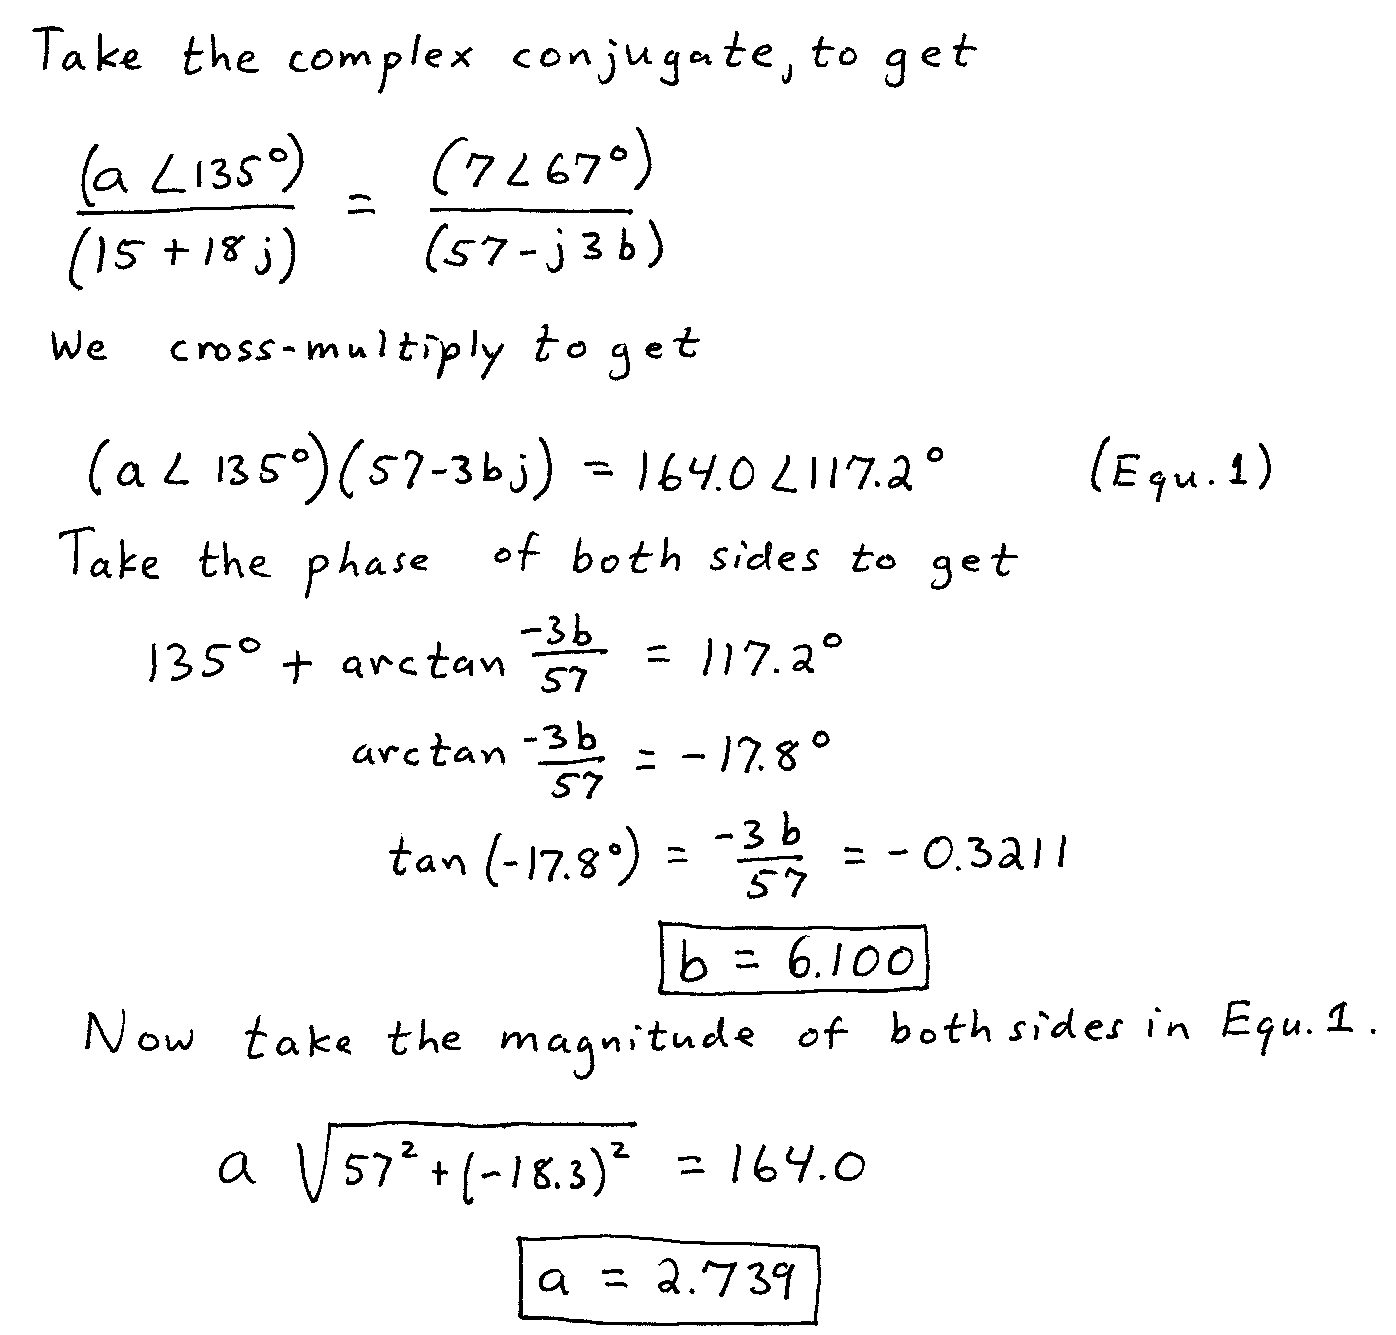 Take the complex conjugate, to get
(a ∠135°) / (15 + 18 j) = (7∠67°) / (57 - j 3 b)
We cross-multiply to get
(a ∠ 135°)(57-3bj) = 164.0 ∠117.2° (Equ. 1)
Take the phase of both sides to get
135° + arctan -3b/57 = 117.2°
arctan -3b/57 = -17.8°
tan (-17.8°) = -3b/57 = -0.3211
b = 6.100
Now take the magnitude of both sides in Equ. 1.
a √(57² + (-18.3)²) = 164.0
a = 2.739